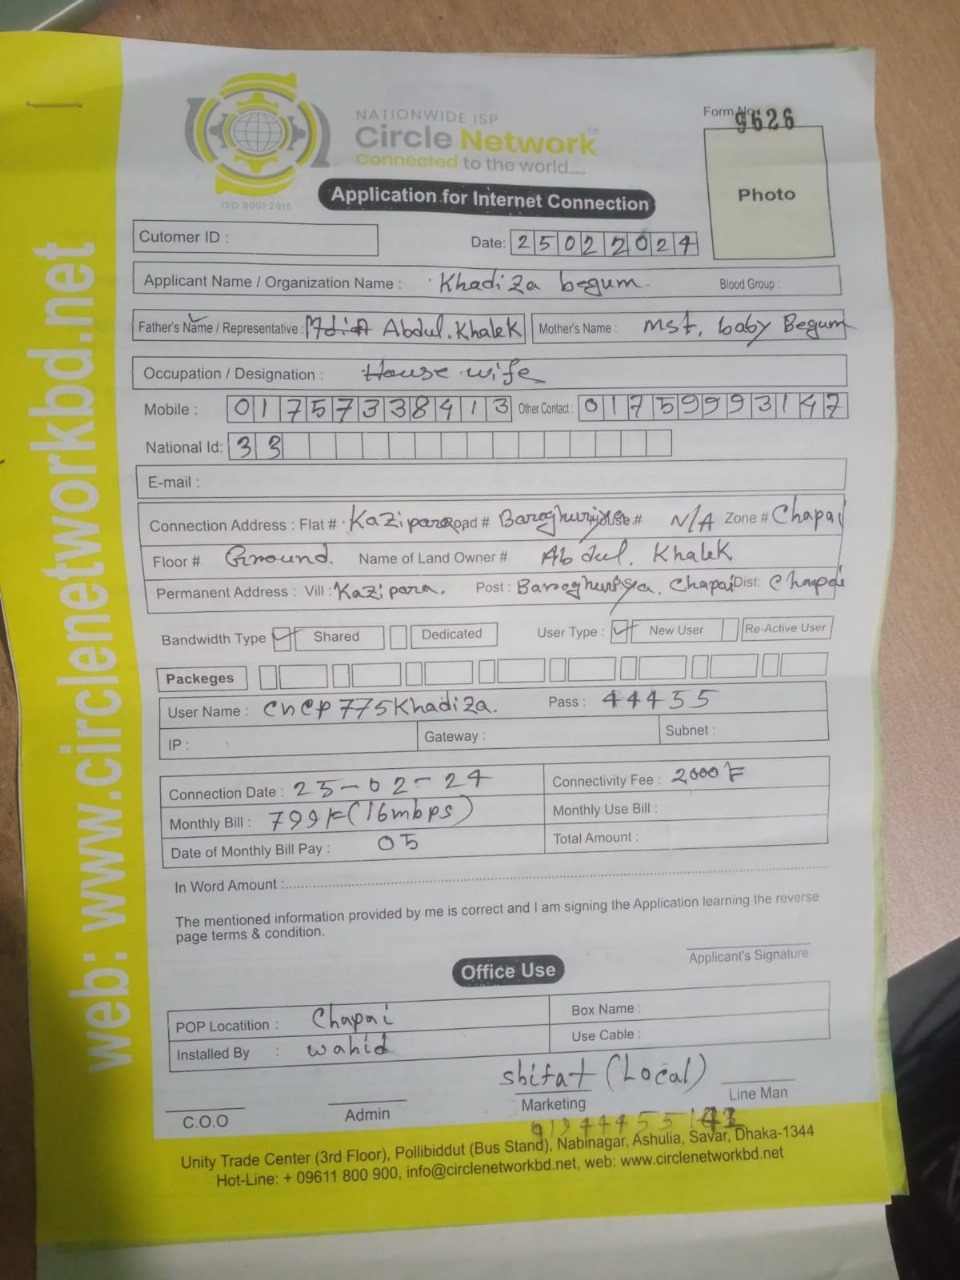 NATIONWIDE ISP
Circle Network
Connected to the world.....
ISO 9001:2015
Form No. 9626
Photo
Application for Internet Connection
Cutomer ID :
Date: 25022024
Applicant Name / Organization Name : Khadiza begum. Blood Group :
Father's Name / Representative : Abdul. Khalek Mother's Name : Mst. baby Begum
Occupation / Designation : House wife
Mobile : 01757338413 Other Contact : 01759993147
National Id: 33
E-mail :
Connection Address : Flat # Kazipara Road # House # N/A Zone # Chapai
Floor # Ground. Name of Land Owner # Abdul. Khalek
Permanent Address : Vill : Kazipara. Post : Chapai Dist: Chapai
Bandwidth Type Shared Dedicated User Type : New User Re-Active User
Packeges
User Name : CNCP775Khadiza. Pass : 44455
IP : Gateway : Subnet :
Connection Date : 25-02-24 Connectivity Fee : 2000
Monthly Bill : 799 (16mbps) Monthly Use Bill :
Date of Monthly Bill Pay : 05 Total Amount :
In Word Amount :
The mentioned information provided by me is correct and I am signing the Application learning the reverse
page terms & condition.
Applicant's Signature
Office Use
POP Locatition : Chapai Box Name :
Installed By : wahid Use Cable :
shifat (Local)
C.O.O Admin Marketing Line Man
Unity Trade Center (3rd Floor), Pollibiddut (Bus Stand), Nabinagar, Ashulia, Savar, Dhaka-1344
Hot-Line: + 09611 800 900, info@circlenetworkbd.net, web: www.circlenetworkbd.net
web: www.circlenetworkbd.net